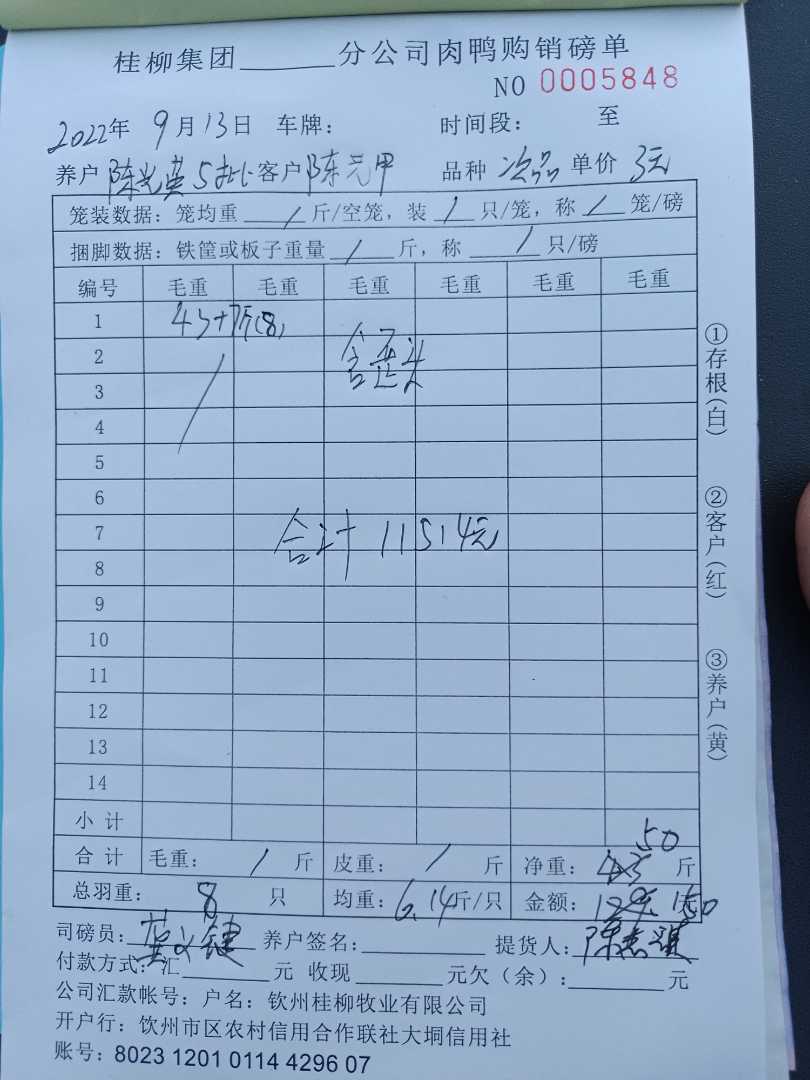 桂柳集团______分公司肉鸭购销磅单
NO 0005848
2022年 9月13日 车牌: 时间段: 至
养户 陈 5批 客户 陈元甲 品种 次品 单价 3元
笼装数据: 笼均重 / 斤/空笼, 装 / 只/笼, 称 / 笼/磅
捆脚数据: 铁筐或板子重量 / 斤, 称 / 只/磅
编号 毛重 毛重 毛重 毛重 毛重 毛重
1
2 含歪头
3
4
5
6
7 合计 11514元
8
9
10
11
12
13
14
小计
合计 毛重: / 斤 皮重: / 斤 净重: 50 斤
总羽重: 8 只 均重: 6.14斤/只 金额: 150
司磅员: 养户签名: 提货人: 陈
付款方式: 汇______元 收现______元欠(余):______元
公司汇款帐号: 户名: 钦州桂柳牧业有限公司
开户行: 饮州市区农村信用合作联社大垌信用社
账号: 8023 1201 0114 4296 07
①存根(白)
②客户(红)
③养户(黄)